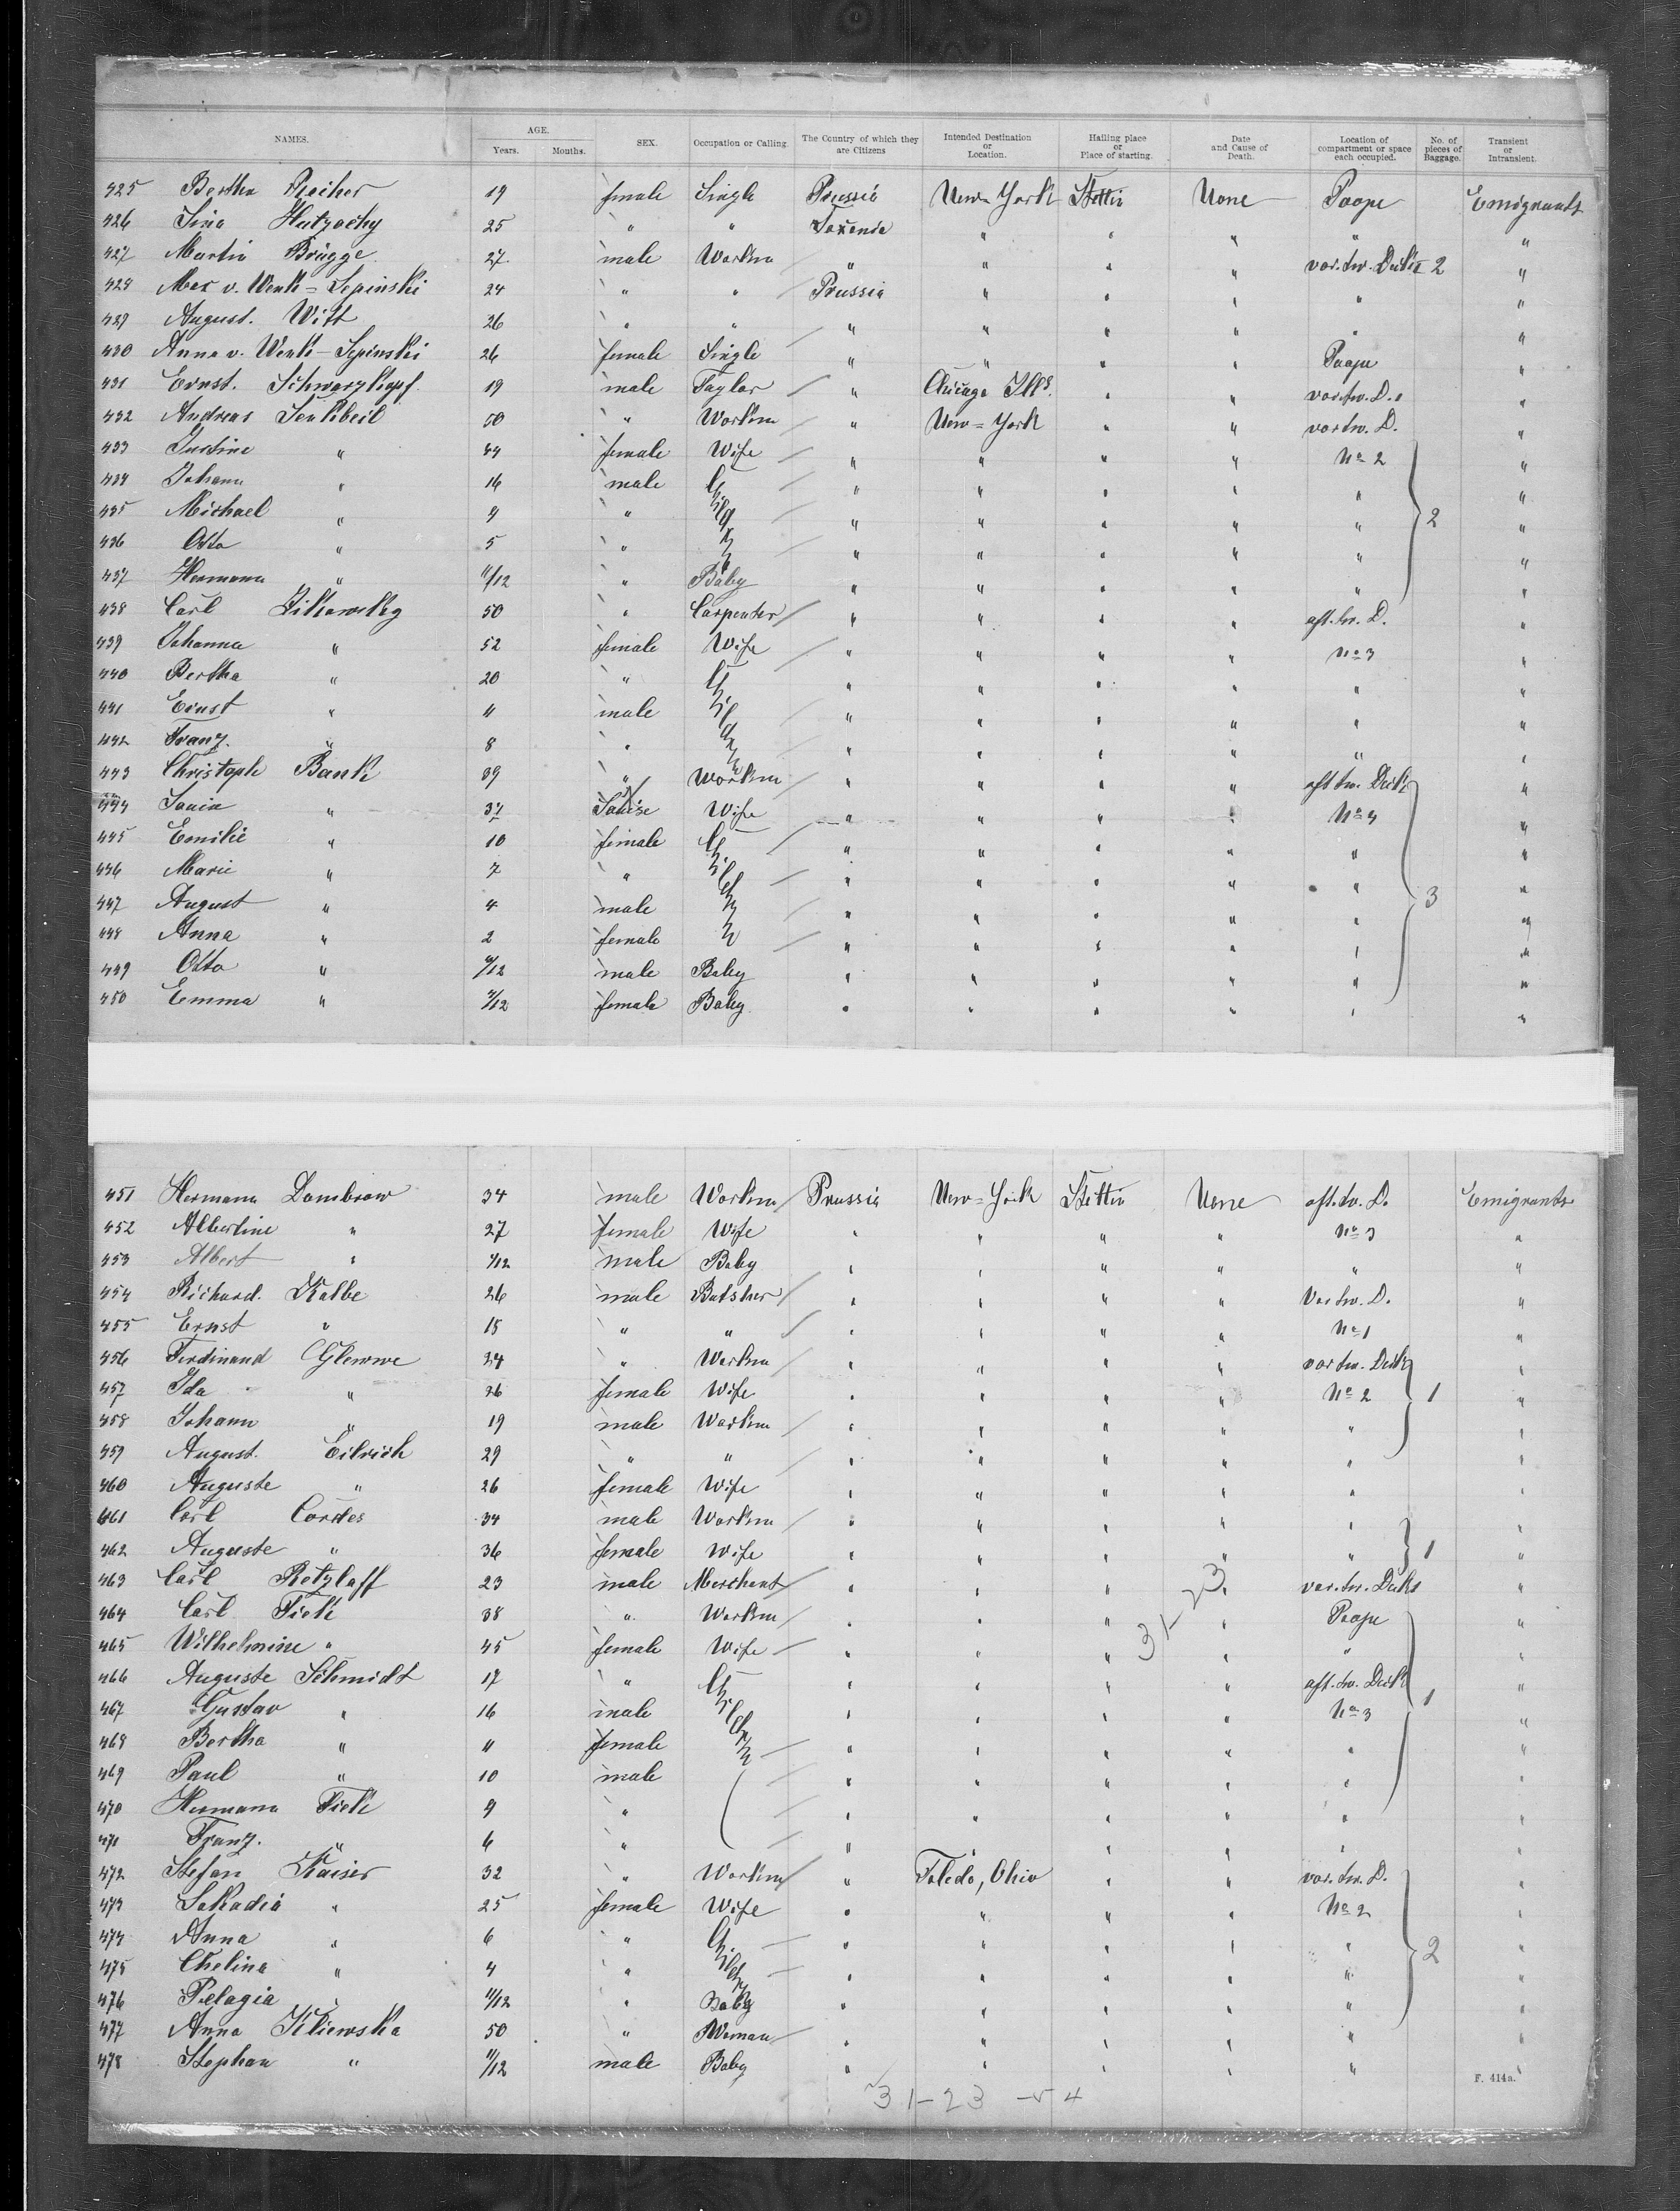 NAMES. AGE. Years. Months. SEX. Occupation or Calling. The Country of which they are Citizens Intended Destination or Location. Hailing place or Place of starting. Date and Cause of Death. Location of compartment or space each occupied. No. of pieces of Baggage. Transient or Intransient.
425 Bertha 19 female Single Prussia New-York Stettin None Poope Emigrants
426 25 " " " " " " "
427 Martin Brügge 27 male Workm " " " " 2 "
428 Max v. Wenk-Lepinski 24 " " Prussia " " " " "
429 August. Witt 26 " " " " " " " "
430 Anna v. Wenk-Lepinski 26 female Single " " " " Poope "
431 Ernst. Schwarzkopf 19 male Taylor " Chicago Ills. " " vor.tw.D. "
432 Andreas Senkbeil 50 " Workm " New-York " " vor tw. D. "
433 Justine " 44 female Wife " " " " No 2 "
434 Johann " 16 male Children " " " " " "
435 Michael " 9 " " " " " " 2 "
436 Otto " 5 " " " " " " "
437 Hermann " 11/12 " Baby " " " " " "
438 Carl 50 " Carpenter " " " " aft.tw. D. "
439 Johanna " 52 female Wife " " " " No 3 "
440 Bertha " 20 " Children " " " " " "
441 Ernst " 11 male " " " " " "
442 Franz. " 8 " " " " " " "
443 Christoph Bank 39 " Workm " " " " aft tw. Deck "
444 " 37 Louise Wife " " " " No 4 "
445 Emilie " 10 female Children " " " " " "
446 Marie " 7 " " " " " " "
447 August " 4 male " " " " " 3 "
448 Anna " 2 female " " " " " "
449 Otto " /12 male Baby " " " " " "
450 Emma " /12 female Baby " " " " " "
451 Hermann Dombrow 34 male Workm Prussia New-York Stettin None aft.tw. D. Emigrants
452 Albertine " 27 female Wife " " " " No 3 "
453 Albert " /12 male Baby " " " " " "
454 Richard. Kalbe 26 male Butsher " " " " Vor tw. D. "
455 Ernst " 15 " " " " " " No 1 "
456 Ferdinand Glewwe 24 " Workm " " " " vor tw. Deck "
457 Ida " 26 female Wife " " " " No 2 1 "
458 Johann " 19 male Workm " " " " " "
459 August. Eilrich 29 " " " " " " " "
460 Auguste " 26 female Wife " " " " " "
461 Carl Cordes 34 male Workm " " " " " "
462 Auguste " 36 female Wife " " " " " 1 "
463 Carl Retzlaff 23 male Merchant " " " " vor.tw. Decks "
464 Carl Fiek 38 " Workm " " " " Poope "
465 Wilhelmine " 45 female Wife " " " " " "
466 Auguste Schmidt 17 " Children " " " " aft.tw. Deck "
467 Gustav " 16 male " " " " No 3 1 "
468 Bertha " 11 female " " " " " "
469 Paul " 10 male " " " " " "
470 Hermann Fiek 9 " " " " " " "
471 Franz. " 6 " " " " " " "
472 Stefan Kaiser 32 " Workm " Toledo, Ohio " " vor.tw. D. "
473 " 25 female Wife " " " " No 2 "
474 Anna " 6 " Children " " " " " "
475 Chelina " 4 " " " " " " 2 "
476 Pelagia " 11/12 " Baby " " " " " "
477 Anna Kliewska 50 " Woman " " " " " "
478 Stephan " 11/12 male Baby " " " " " "
31-23
31-23
F. 414a.